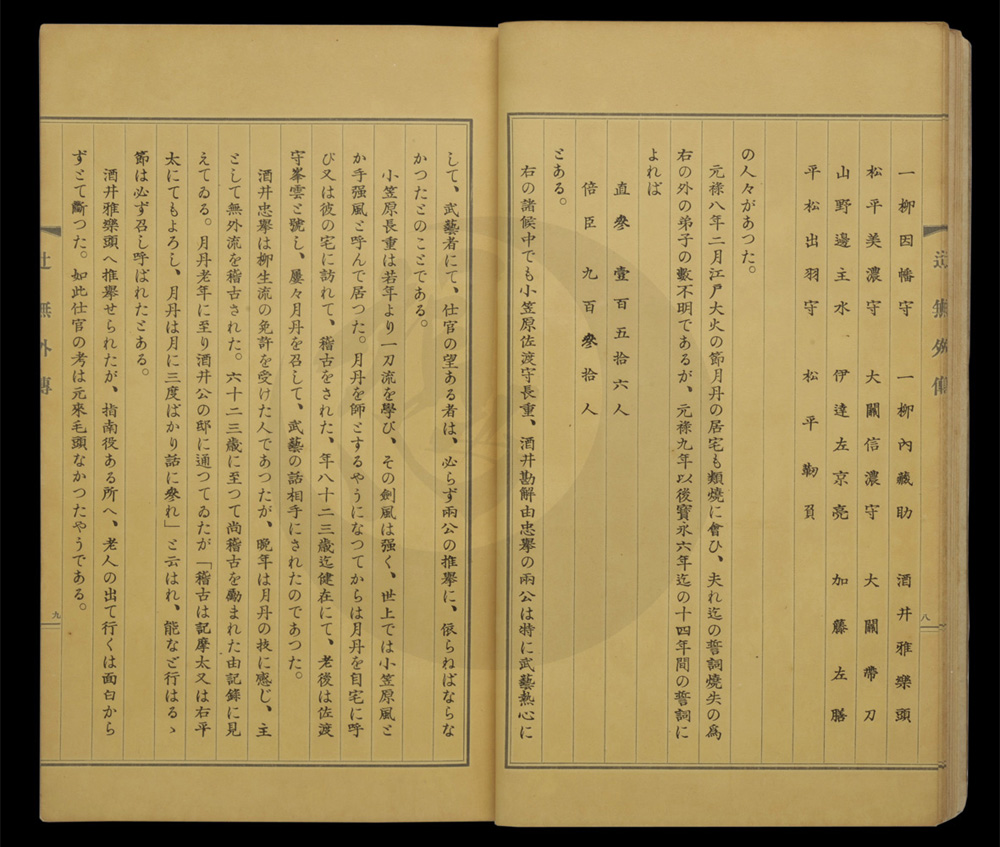 一柳因幡守　一柳內藏助　酒井雅樂頭
松平美濃守　大關信濃守　大關帶刀
山野邊主水　伊達左京亮　加藤左膳
平松出羽守　松平靱負
の人々があつた。
元祿八年二月江戶大火の節月丹の居宅も類燒に會ひ、夫れ迄の誓詞燒失の爲
右の外の弟子の數不明であるが、元祿九年以後寶永六年迄の十四年間の誓詞に
よれば
直參　壹百五拾六人
倍臣　九百參拾人
とある。
右の諸候中でも小笠原佐渡守長重、酒井勘解由忠擧の兩公は特に武藝熱心に
八
して、武藝者にて、仕官の望ある者は、必らず兩公の推擧に、依らねばならな
かつたとのことである。
小笠原長重は若年より一刀流を學び、その劍風は强く、世上では小笠原風と
か手强風と呼んで居つた。月丹を師とするやうになつてからは月丹を自宅に呼
び又は彼の宅に訪れて、稽古をされた、年八十二三歲迄健在にて、老後は佐渡
守峯雲と號し、屢々月丹を召して、武藝の話相手にされたのであつた。
酒井忠擧は柳生流の免許を受けた人であつたが、晩年は月丹の技に感じ、主
として無外流を稽古された。六十二三歲に至つて尚稽古を勵まれた由記錄に見
えてゐる。月丹老年に至り酒井公の邸に通つてゐたが「稽古は記摩太又は右平
太にてもよろし、月丹は月に三度ばかり話に參れ」と云はれ、能など行はるゝ
節は必ず召し呼ばれたとある。
酒井雅樂頭へ推擧せられたが、指南役ある所へ、老人の出て行くは面白から
ずとて斷つた。如此仕官の考は元來毛頭なかつたやうである。
辻無外傳
九